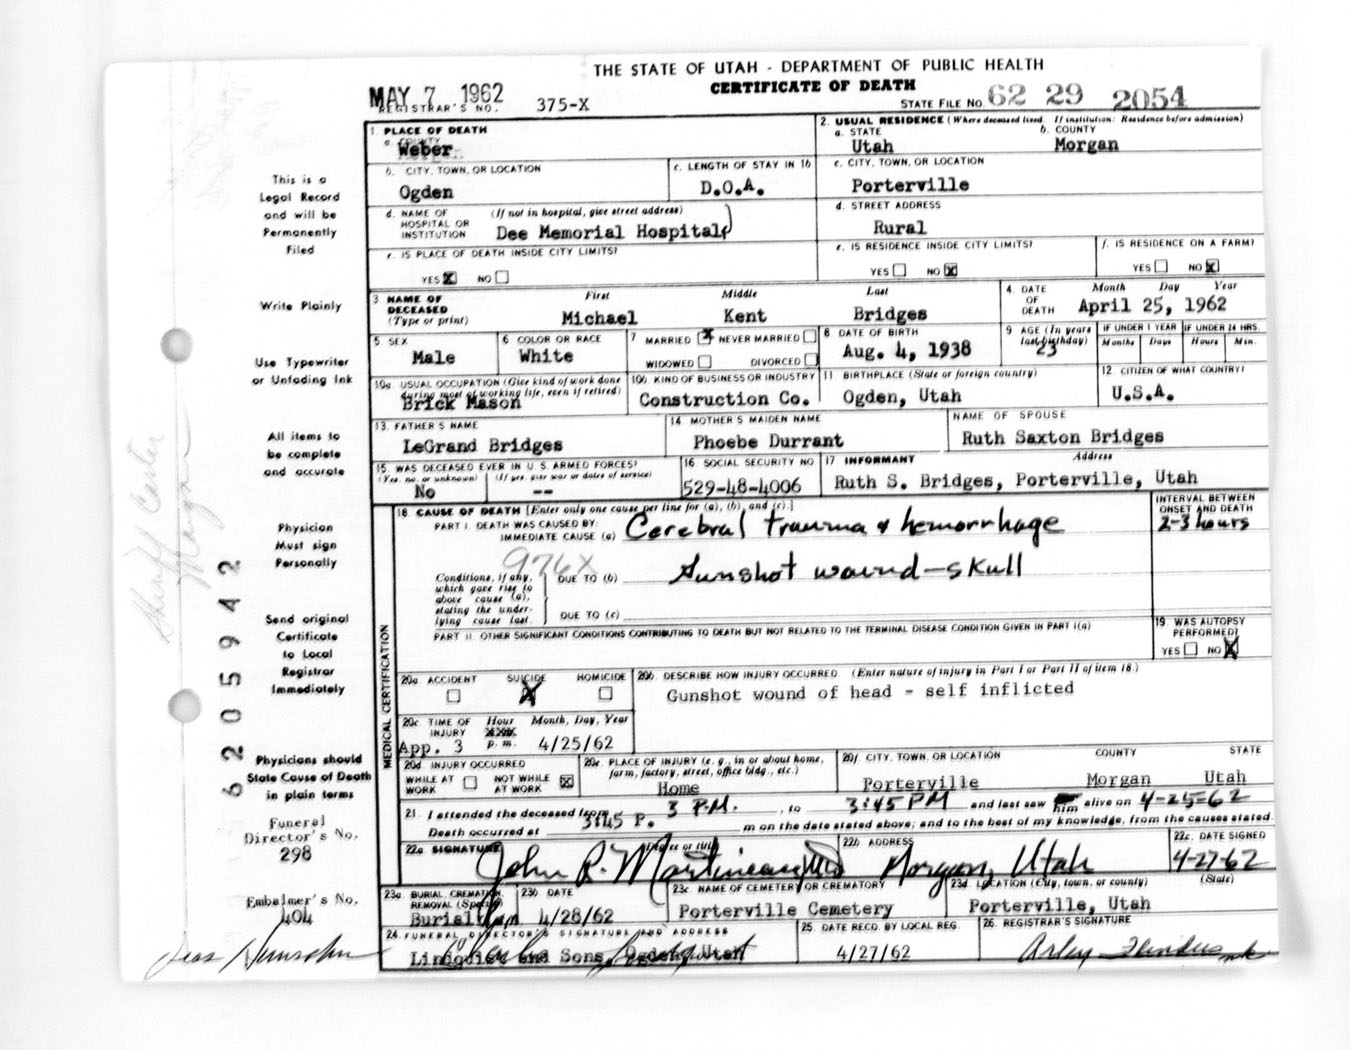 THE STATE OF UTAH - DEPARTMENT OF PUBLIC HEALTH
CERTIFICATE OF DEATH
MAY 7 1962
REGISTRAR'S NO. 375-X
STATE FILE NO. 62 29 2054
This is a
Legal Record
and will be
Permanently
Filed
Write Plainly
Use Typewriter
or Unfading Ink
All items to
be complete
and accurate
Physician
Must sign
Personally
Send original
Certificate
to Local
Registrar
Immediately
Physicians should
State Cause of Death
in plain terms
Funeral
Director's No.
298
Embalmer's No.
404
Sheriff
Morgan
6205942
1. PLACE OF DEATH
a. COUNTY
Weber
2. USUAL RESIDENCE (Where deceased lived. If institution: Residence before admission)
a. STATE b. COUNTY
Utah Morgan
b. CITY, TOWN, OR LOCATION
Ogden
c. LENGTH OF STAY IN 1b
D.O.A.
c. CITY, TOWN, OR LOCATION
Porterville
d. NAME OF HOSPITAL OR INSTITUTION (If not in hospital, give street address)
Dee Memorial Hospital
d. STREET ADDRESS
Rural
e. IS PLACE OF DEATH INSIDE CITY LIMITS?
YES X NO
e. IS RESIDENCE INSIDE CITY LIMITS?
YES NO X
f. IS RESIDENCE ON A FARM?
YES NO X
3 NAME OF DECEASED (Type or print)
First Middle Last
Michael Kent Bridges
4. DATE OF DEATH
Month Day Year
April 25, 1962
5 SEX
Male
6 COLOR OR RACE
White
7 MARRIED X NEVER MARRIED
WIDOWED DIVORCED
8 DATE OF BIRTH
Aug. 4, 1938
9 AGE (In years last birthday)
23
IF UNDER 1 YEAR IF UNDER 24 HRS.
Months Days Hours Min.
10a. USUAL OCCUPATION (Give kind of work done during most of working life, even if retired)
Brick Mason
10b KIND OF BUSINESS OR INDUSTRY
Construction Co.
11 BIRTHPLACE (State or foreign country)
Ogden, Utah
12 CITIZEN OF WHAT COUNTRY?
U.S.A.
13. FATHER'S NAME
LeGrand Bridges
14 MOTHER'S MAIDEN NAME
Phoebe Durrant
NAME OF SPOUSE
Ruth Saxton Bridges
15. WAS DECEASED EVER IN U.S. ARMED FORCES?
(Yes, no, or unknown) (If yes, give war or dates of service)
No --
16 SOCIAL SECURITY NO
529-48-4006
17 INFORMANT Address
Ruth S. Bridges, Porterville, Utah
MEDICAL CERTIFICATION
18. CAUSE OF DEATH [Enter only one cause per line for (a), (b), and (c).]
PART I. DEATH WAS CAUSED BY:
IMMEDIATE CAUSE (a) Cerebral trauma & hemorrhage
INTERVAL BETWEEN ONSET AND DEATH
2-3 hours
976X
Conditions, if any, which gave rise to above cause (a), stating the underlying cause last.
DUE TO (b) Gunshot wound-skull
DUE TO (c)
PART II. OTHER SIGNIFICANT CONDITIONS CONTRIBUTING TO DEATH BUT NOT RELATED TO THE TERMINAL DISEASE CONDITION GIVEN IN PART I(a)
19. WAS AUTOPSY PERFORMED?
YES NO X
20a. ACCIDENT SUICIDE X HOMICIDE
20b DESCRIBE HOW INJURY OCCURRED (Enter nature of injury in Part I or Part II of item 18.)
Gunshot wound of head - self inflicted
20c. TIME OF INJURY Hour Month, Day, Year
App. 3 p.m. 4/25/62
20d. INJURY OCCURRED
WHILE AT WORK NOT WHILE AT WORK X
20e. PLACE OF INJURY (e.g., in or about home, farm, factory, street, office bldg., etc.)
Home
20f. CITY, TOWN, OR LOCATION COUNTY STATE
Porterville Morgan Utah
21. I attended the deceased from 3 P.M., to 3:45 PM and last saw him alive on 4-25-62
Death occurred at 3:45 P. m on the date stated above; and to the best of my knowledge, from the causes stated.
22a. SIGNATURE (Degree or title)
John R. Martineau MD
22b ADDRESS
Morgan, Utah
22c. DATE SIGNED
4-27-62
23a BURIAL, CREMATION, REMOVAL (Specify)
Burial
23b DATE
4/28/62
23c. NAME OF CEMETERY OR CREMATORY
Porterville Cemetery
23d. LOCATION (City, town, or county) (State)
Porterville, Utah
24. FUNERAL DIRECTOR'S SIGNATURE AND ADDRESS
Lindquist and Sons Ogden, Utah
25. DATE RECD. BY LOCAL REG.
4/27/62
26. REGISTRAR'S SIGNATURE